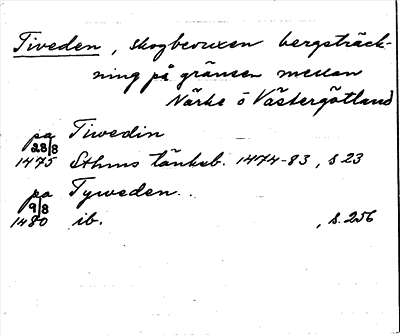 Tiveden, skogbevuxen bergsträck-
ning på gränsen mellan
Närke o Västergötland
pa Tiwedin
28/8
1475 Sthms tänkeb. 1474-83, s 23
pa Tyweden.
9/8
1480 ib. , s. 256